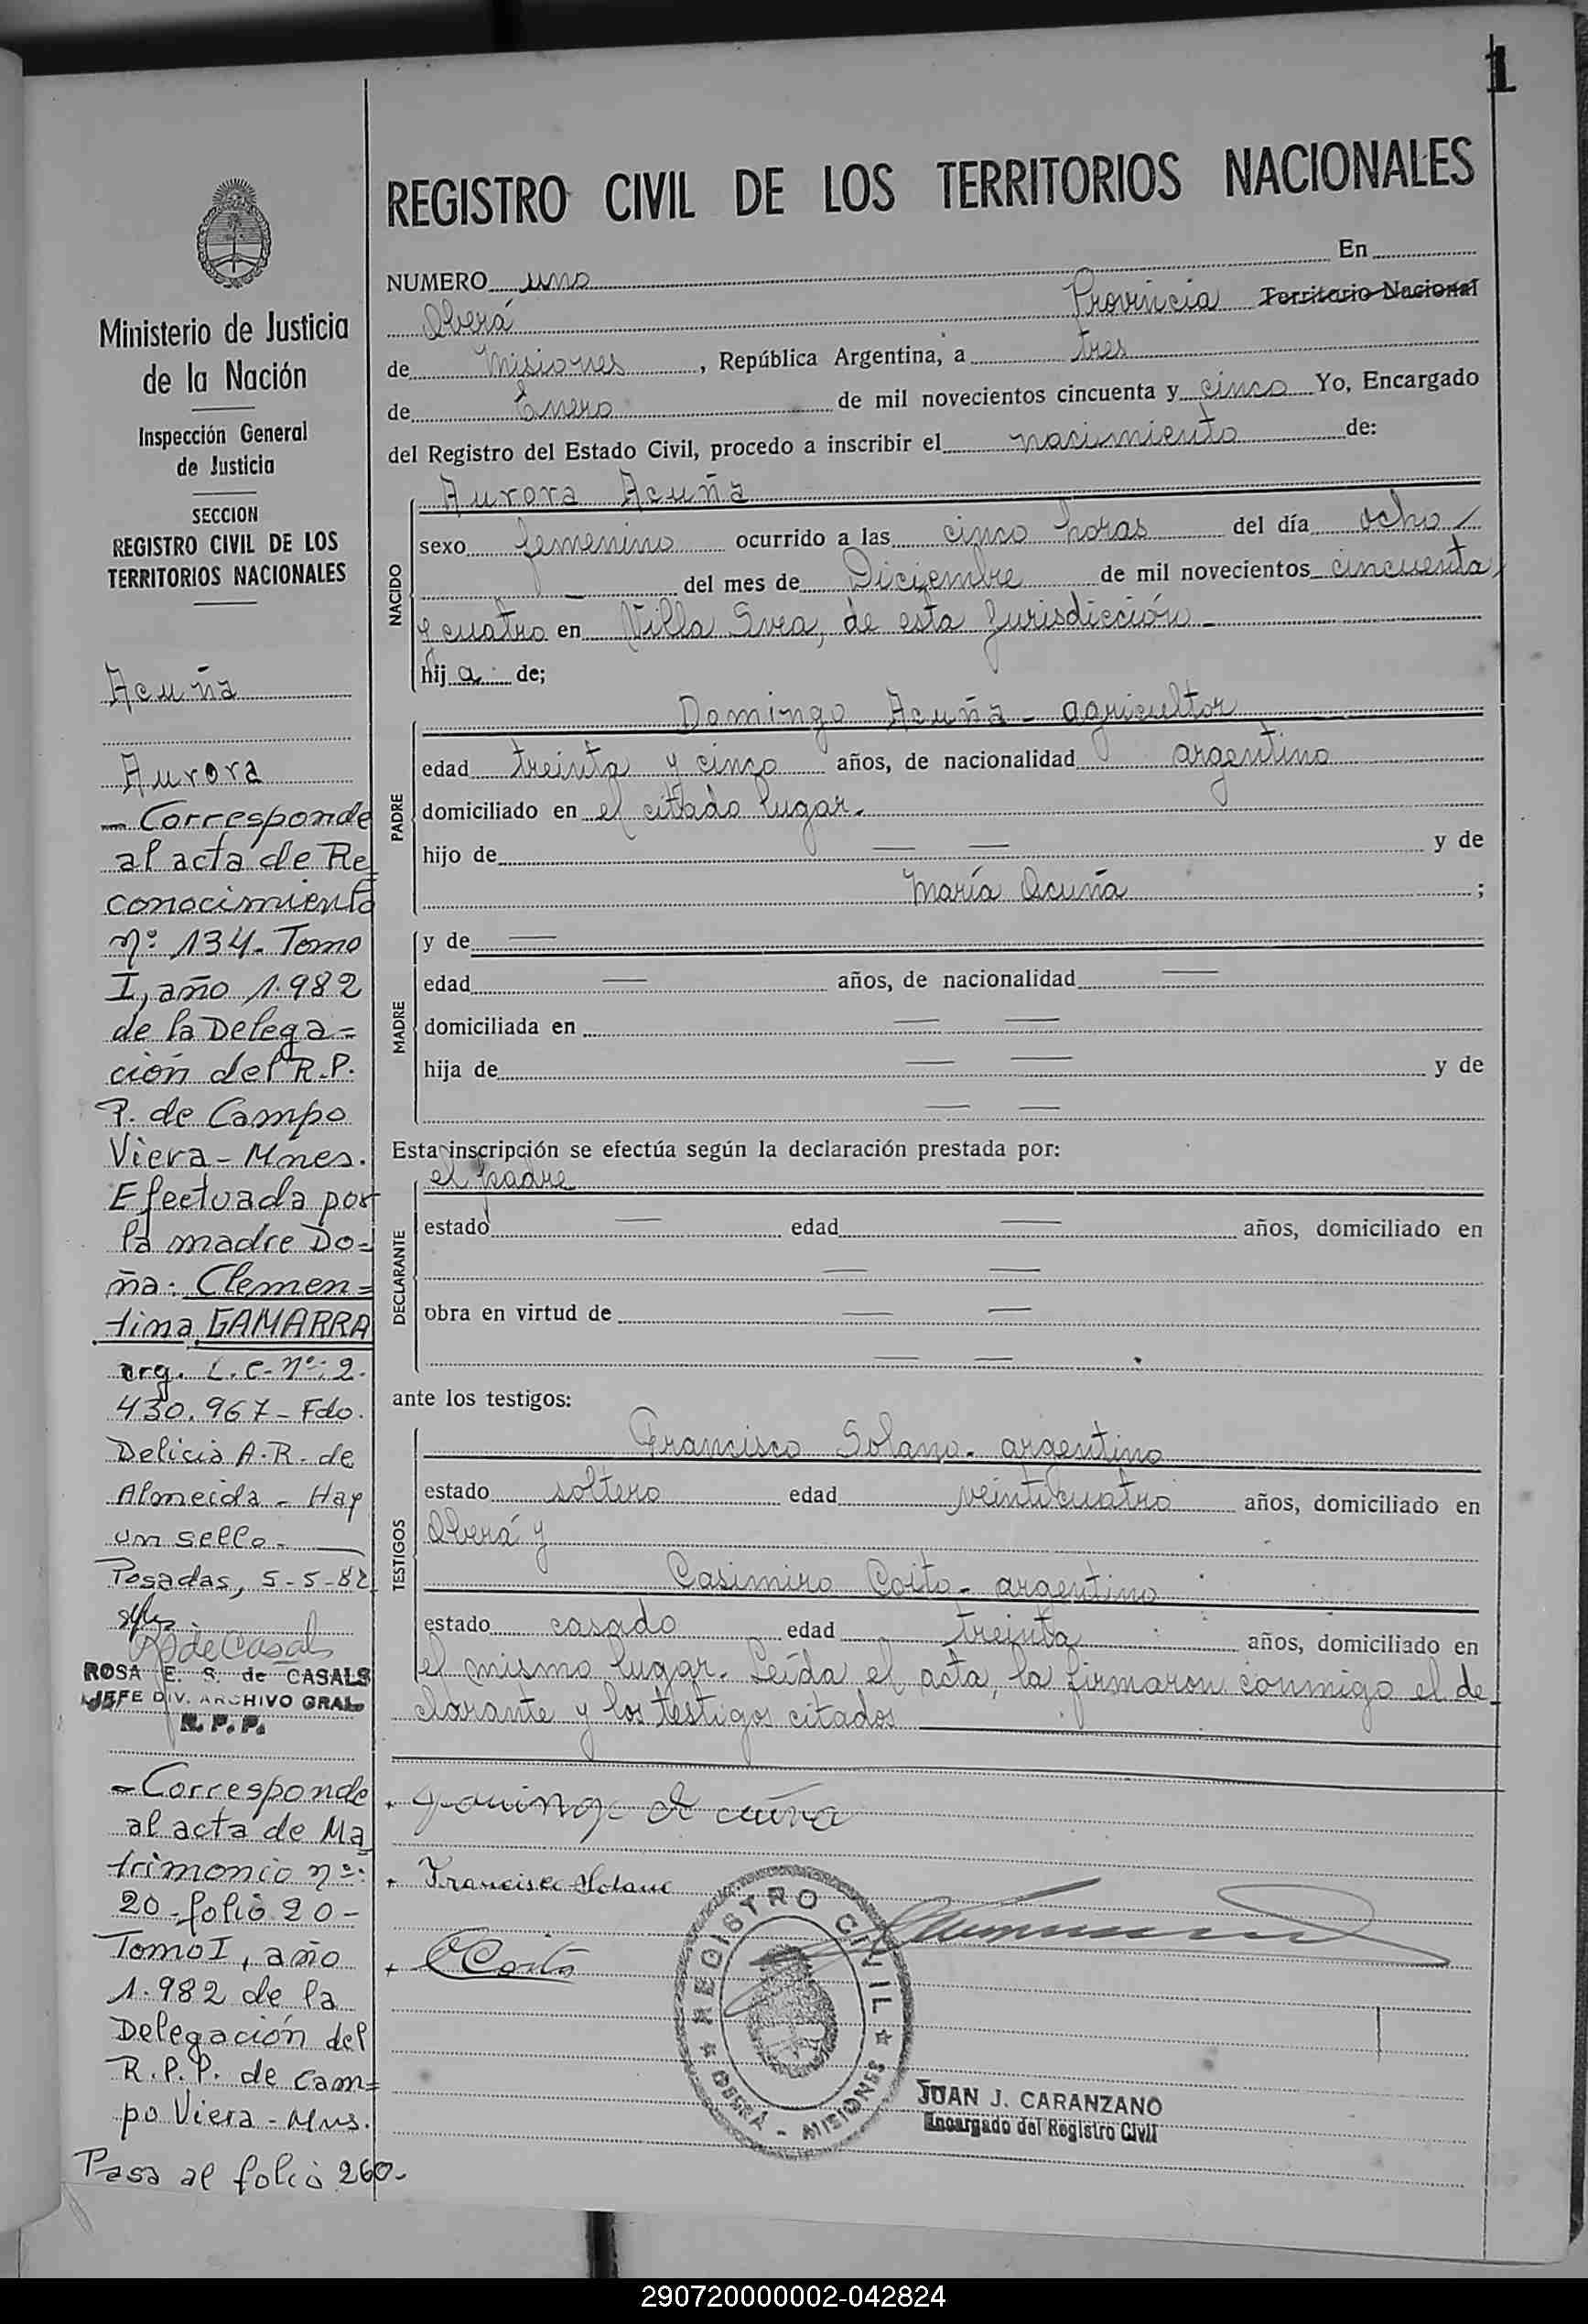 1
REGISTRO CIVIL DE LOS TERRITORIOS NACIONALES
NUMERO uno En
Oberá Provincia Territorio Nacional
de Misiones, República Argentina, a tres
de Enero de mil novecientos cincuenta y cinco Yo, Encargado
del Registro del Estado Civil, procedo a inscribir el nacimiento de:
NACIDO
Aurora Acuña
sexo femenino ocurrido a las cinco horas del día ocho
del mes de Diciembre de mil novecientos cincuenta
y cuatro en Villa Svea, de esta Jurisdicción.
hija de;
PADRE
Domingo Acuña - agricultor
edad treinta y cinco años, de nacionalidad argentino
domiciliado en el citado lugar.
hijo de — — y de
María Acuña ;
MADRE
y de —
edad — años, de nacionalidad —
domiciliada en — —
hija de — — y de
— —
Esta inscripción se efectúa según la declaración prestada por:
DECLARANTE
el padre
estado — edad — años, domiciliado en
— —
obra en virtud de — —
— —
ante los testigos:
TESTIGOS
Francisco Solano - argentino
estado soltero edad veinticuatro años, domiciliado en
Oberá y
Casimiro Coito - argentino
estado casado edad treinta años, domiciliado en
el mismo lugar. Leída el acta, la firmaron conmigo el de-
clarante y los testigos citados
Domingo Acuña
Francisco Solano
C Coito
REGISTRO CIVIL
OBERÁ - MISIONES
JUAN J. CARANZANO
Encargado del Registro Civil
Ministerio de Justicia
de la Nación
Inspección General
de Justicia
SECCION
REGISTRO CIVIL DE LOS
TERRITORIOS NACIONALES
Acuña
Aurora
- Corresponde
al acta de Re=
conocimiento
nº 134. Tomo
I, año 1.982
de la Delega=
ción del R.P.
P. de Campo
Viera - Mnes.
Efectuada por
la madre Do=
ña: Clemen=
tina GAMARRA
arg. L.C. nº: 2.
430.967 - Fdo.
Delicia A.R. de
Almeida - Hay
un sello.
Posadas, 5-5-82
R de Casals
ROSA E. S. de CASALS
JEFE DIV. ARCHIVO GRAL.
R. P. P.
- Corresponde
al acta de Ma
trimonio nº:
20 - folio 20 -
Tomo I, año
1.982 de la
Delegación del
R.P.P. de Cam=
po Viera - Mns.
Pasa al folio 260.
290720000002-042824